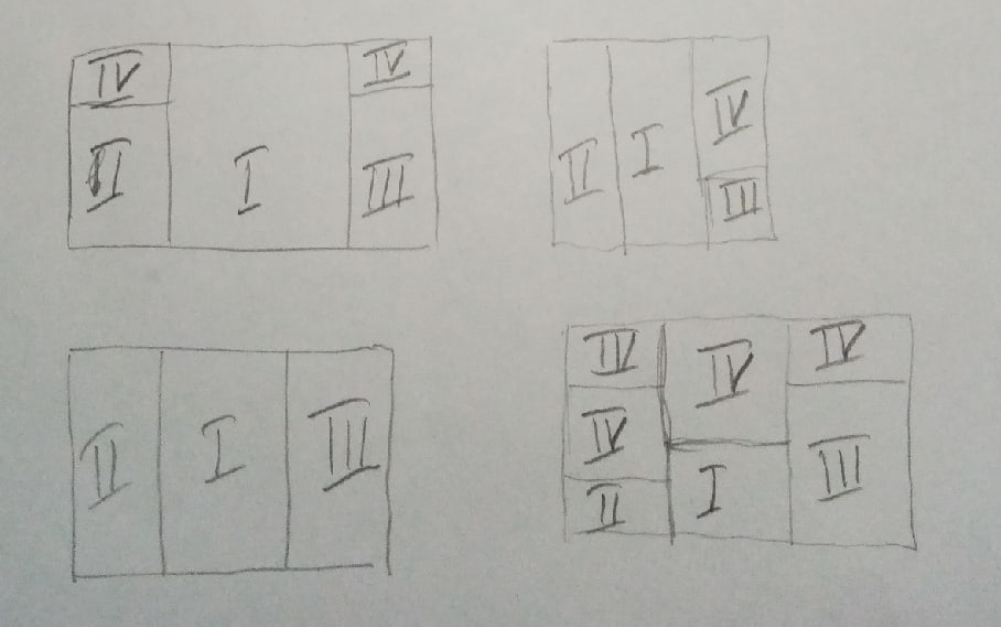 IV IV
II I III
IV
II I
III
II I III
IV IV IV
IV
II I III